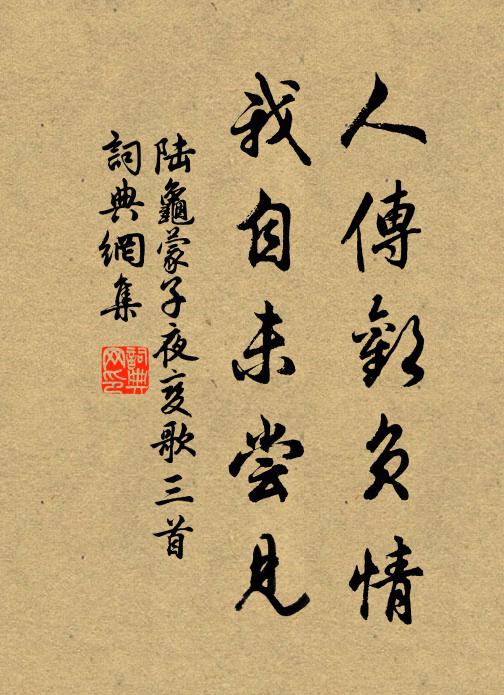 人傳歡負情
我自未嘗見
陸龜蒙子夜變歌三首
詞典網集
詞典网印